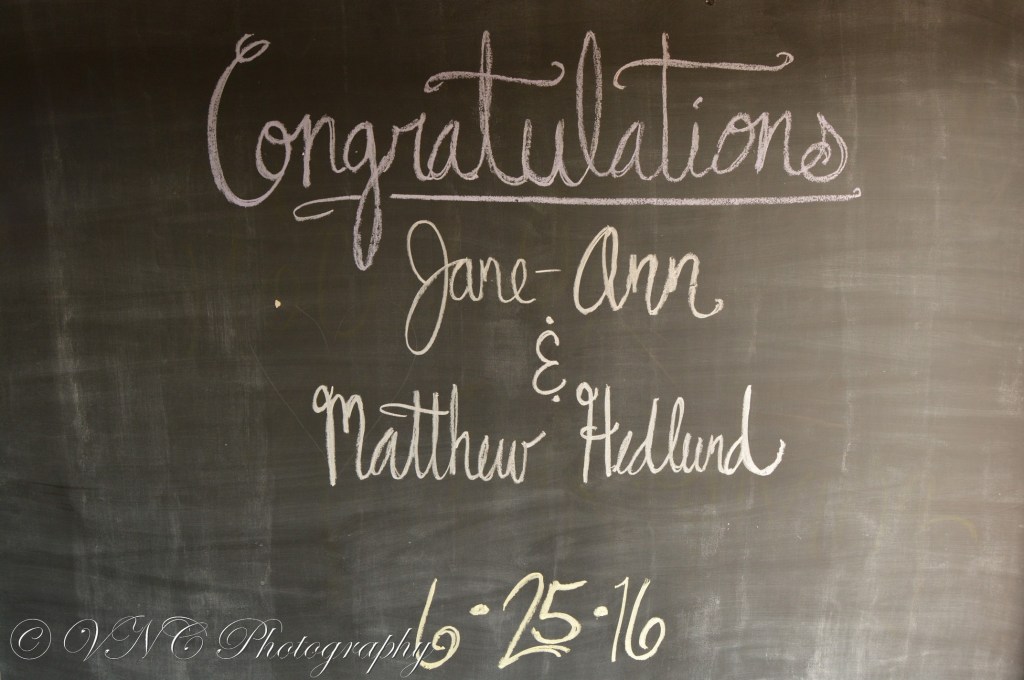 Congratulations
Jane-Ann
&
Matthew Hedlund
6·25·16
© VNC Photography